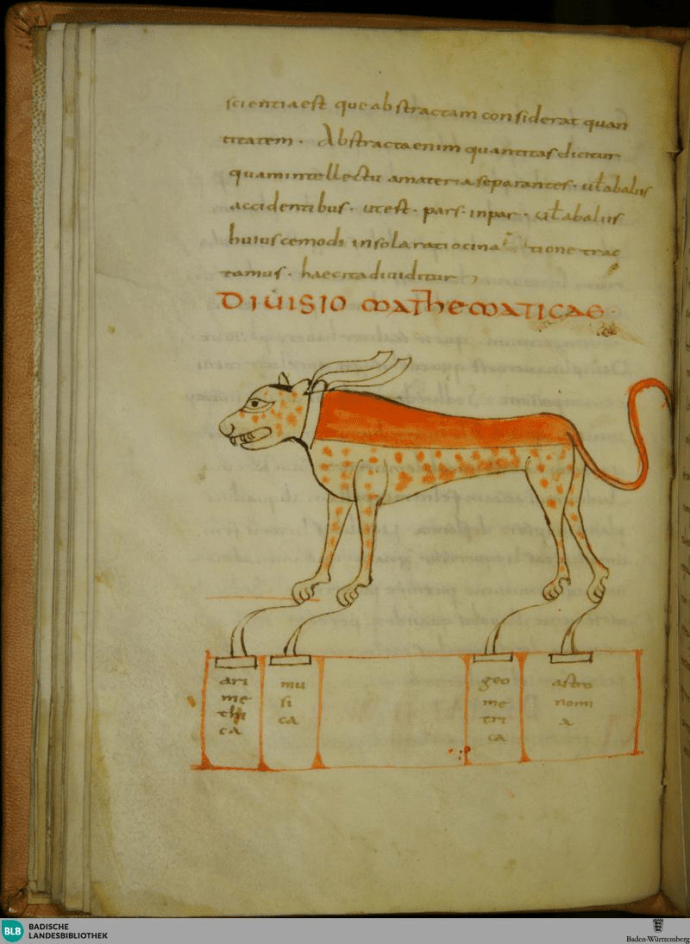 scientia est que abstractam considerat quan
titatem · Abstracta enim quantitas dicitur
quam intellectu a materia separantes · ul̄ ab aliis
accidentibus · ut est · par · inpar · ul̄ ab aliis
huiuscemodi in sola ratiocina tione trac
tamus · haec ita diuiditur
DIUISIO MATHEMATICAE ·
ari
me
thi
ca
mu
si
ca
geo
me
tri
ca
astro
nomi
a
BLB
BADISCHE
LANDESBIBLIOTHEK
Baden-Württemberg